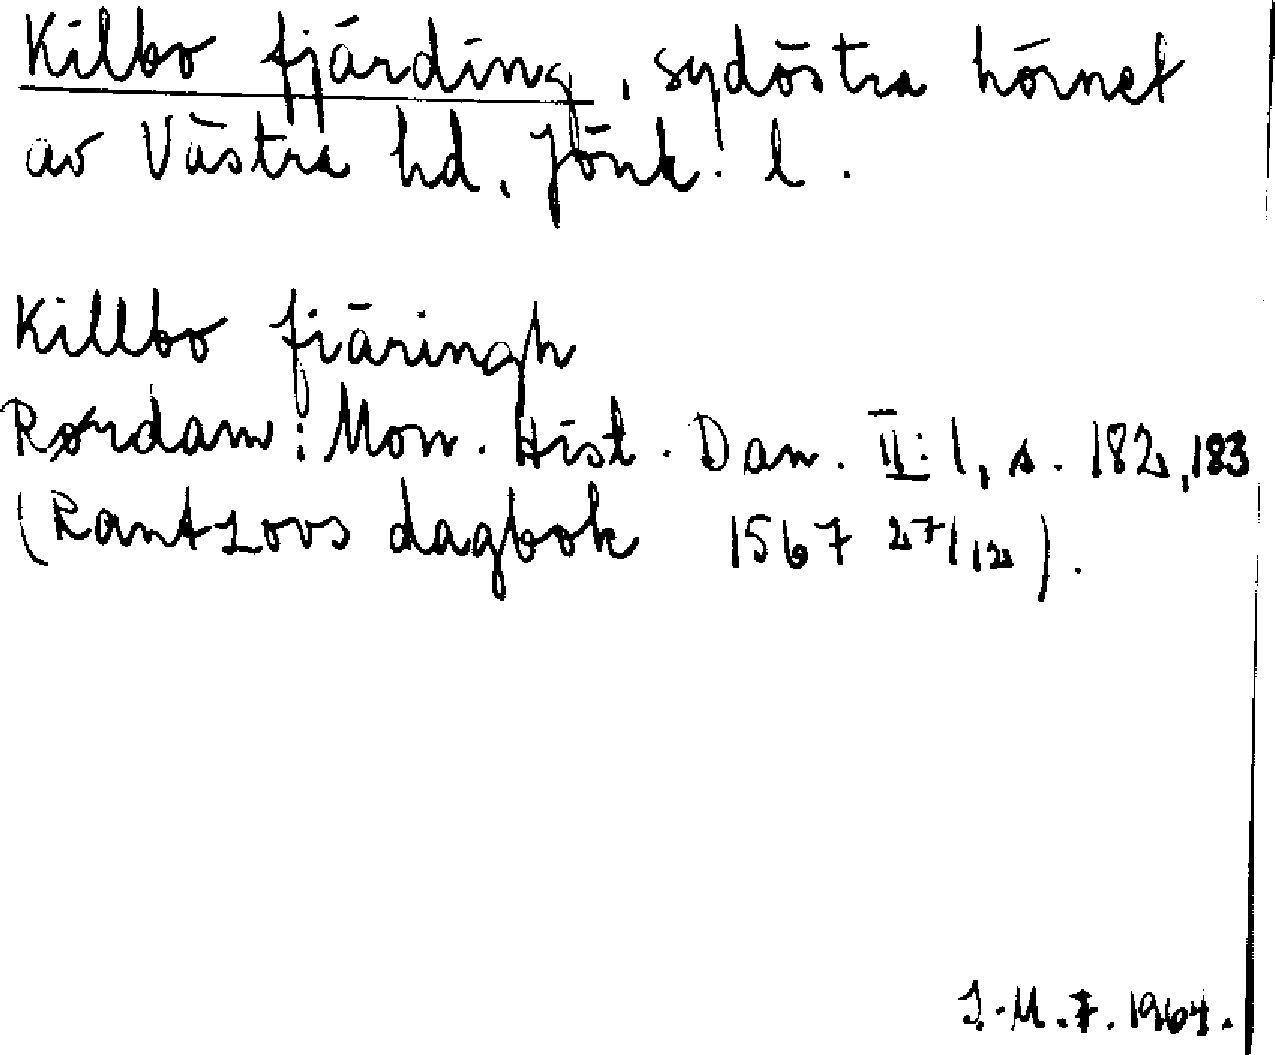 Kilbo fjärding, sydöstra hörnet
av Västra hd, Jönk. l.
Killbo fiäringh
Rørdam: Mon. Hist. Dan. II:1, s. 182, 183
(Rantzovs dagbok 1567 27/12).
I.M.F. 1964.